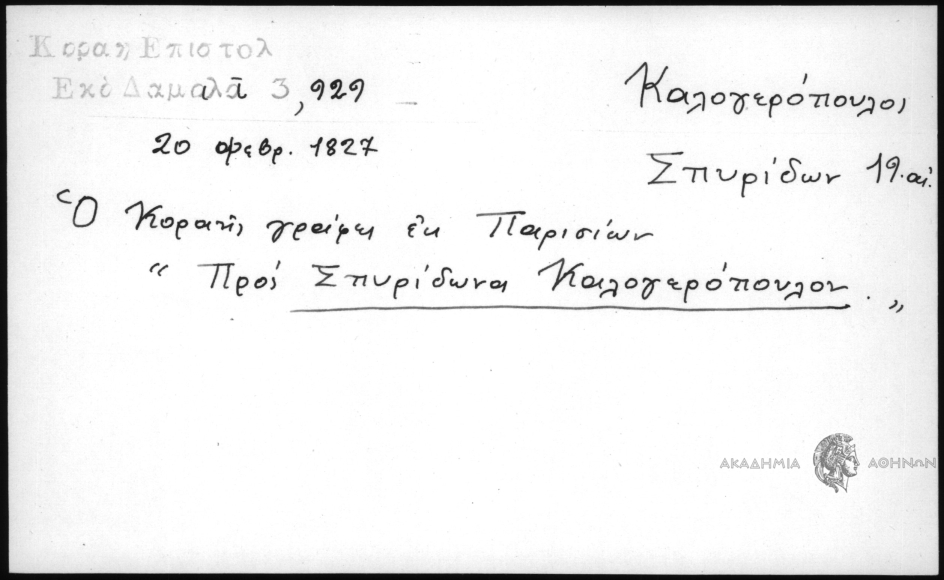 Κοραη Επιστολ
Εκδ Δαμαλᾶ 3, 929
20 φεβρ. 1827
Καλογερόπουλος
Σπυρίδων 19. αἰ.
Ὁ Κοραῆς γράφει ἐκ Παρισίων
“ Πρός Σπυρίδωνα Καλογερόπουλον. „
ΑΚΑΔΗΜΙΑ ΑΘΗΝΩΝ